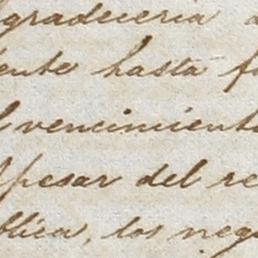 gradeceria a
ente hasta f
l vencimient
Apesar del re
blica, los neg